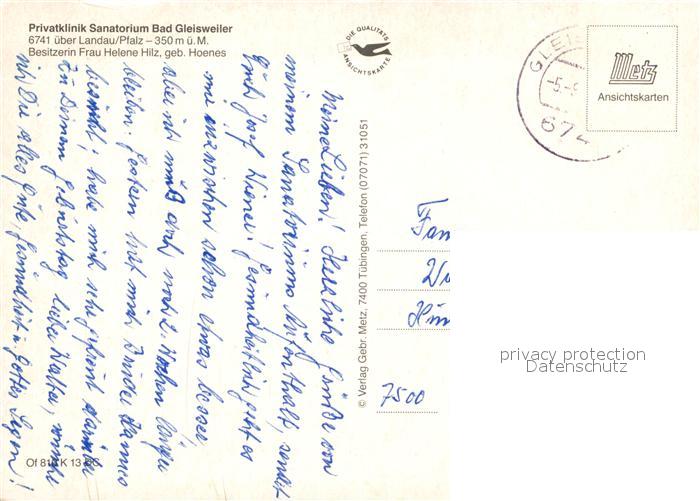 Privatklinik Sanatorium Bad Gleisweiler
6741 über Landau/Pfalz – 350 m ü. M.
Besitzerin Frau Helene Hilz, geb. Hoenes
DIE QUALITÄTS
ANSICHTSKARTE
GLEIS
-5.-
674
Metz
Ansichtskarten
Meine Lieben! Herzliche Grüße von
meinem Sanatoriums Aufenthalt, sendet
Euch Josef Wiener! Gesundheitlich geht es
mir inzwischen schon etwas besser,
aber ich muß auch noch 2. Wochen länger
bleiben. Gestern hat mich Bruder
besucht, habe mich sehr gefreut darüber
Zu Deinem Geburtstag lieber Walter, wünsche
ich Dir alles Gute, Gesundheit u. Gottes Segen!
© Verlag Gebr. Metz, 7400 Tübingen, Telefon (07071) 31051
Fam
7500
privacy protection
Datenschutz
K 13